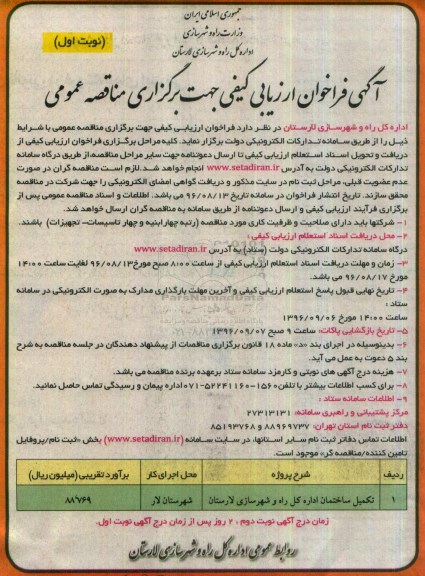 جمهوری اسلامی ایران
وزارت راه و شهرسازی
اداره کل راه و شهرسازی لارستان
(نوبت اول)
آگهی فراخوان ارزیابی کیفی جهت برگزاری مناقصه عمومی
اداره کل راه و شهرسازی لارستان در نظر دارد فراخوان ارزیابی کیفی جهت برگزاری مناقصه عمومی با شرایط
ذیل را از طریق سامانه تدارکات الکترونیکی دولت برگزار نماید. کلیه مراحل برگزاری فراخوان ارزیابی کیفی از
دریافت و تحویل اسناد استعلام ارزیابی کیفی تا ارسال دعوتنامه جهت سایر مراحل مناقصه، از طریق درگاه سامانه
تدارکات الکترونیکی دولت به آدرس www.setadiran.ir انجام خواهد شد. لازم است مناقصه گران در صورت
عدم عضویت قبلی، مراحل ثبت نام در سایت مذکور و دریافت گواهی امضای الکترونیکی را جهت شرکت در مناقصه
محقق سازند. تاریخ انتشار فراخوان در سامانه تاریخ ۹۶/۰۸/۱۳ می باشد. اطلاعات و اسناد مناقصه عمومی پس از
برگزاری فرآیند ارزیابی کیفی و ارسال دعوتنامه از طریق سامانه به مناقصه گران ارسال خواهد شد.
۱- شرکتها باید دارای صلاحیت و ظرفیت کاری مورد مناقصه (رتبه چهار ابنیه و چهار تاسیسات- تجهیزات) باشند.
۲- محل دریافت اسناد استعلام ارزیابی کیفی :
درگاه سامانه تدارکات الکترونیکی دولت (ستاد) به آدرس www.setadiran.ir
۳- زمان و مهلت دریافت اسناد استعلام ارزیابی کیفی از ساعت ۸:۰۰ صبح مورخ ۹۶/۰۸/۱۳ لغایت ساعت ۱۴:۰۰
مورخ ۹۶/۰۸/۱۷ می باشد.
۴- تاریخ نهایی قبول پاسخ استعلام ارزیابی کیفی و آخرین مهلت بارگذاری مدارک به صورت الکترونیکی در سامانه
ستاد :
ساعت ۱۴:۰۰ مورخ ۱۳۹۶/۰۹/۰۶
۵- تاریخ بازگشایی پاکات: ساعت ۹ صبح ۱۳۹۶/۰۹/۰۷
۶- بدینوسیله در اجرای بند «د» ماده ۱۸ قانون برگزاری مناقصات از پیشنهاد دهندگان در جلسه مناقصه به شرح
بند ۵ دعوت به عمل می آید.
۷- هزینه درج آگهی های نوبتی و کارمزد سامانه ستاد برعهده برنده مناقصه می باشد.
۸- برای کسب اطلاعات بیشتر با تلفن ۱۵۶۰-۵۲۲۴۱۱۶۰-۰۷۱ اداره پیمان و رسیدگی تماس حاصل نمائید.
۹- اطلاعات سامانه ستاد :
مرکز پشتیبانی و راهبری سامانه: ۲۷۳۱۳۱۳۱
دفتر ثبت نام استان تهران: ۸۸۹۶۹۷۳۷ و ۸۵۱۹۳۷۶۸
اطلاعات تماس دفاتر ثبت نام سایر استانها، در سایت سامانه (www.setadiran.ir) بخش «ثبت نام/پروفایل
تامین کننده/مناقصه گر» موجود است.
ردیف شرح پروژه محل اجرای کار برآورد تقریبی (میلیون ریال)
۱ تکمیل ساختمان اداره کل راه و شهرسازی لارستان شهرستان لار ۸۸/۷۶۹
زمان درج آگهی نوبت دوم ، ۲ روز پس از زمان درج آگهی نوبت اول.
روابط عمومی اداره کل راه و شهرسازی لارستان